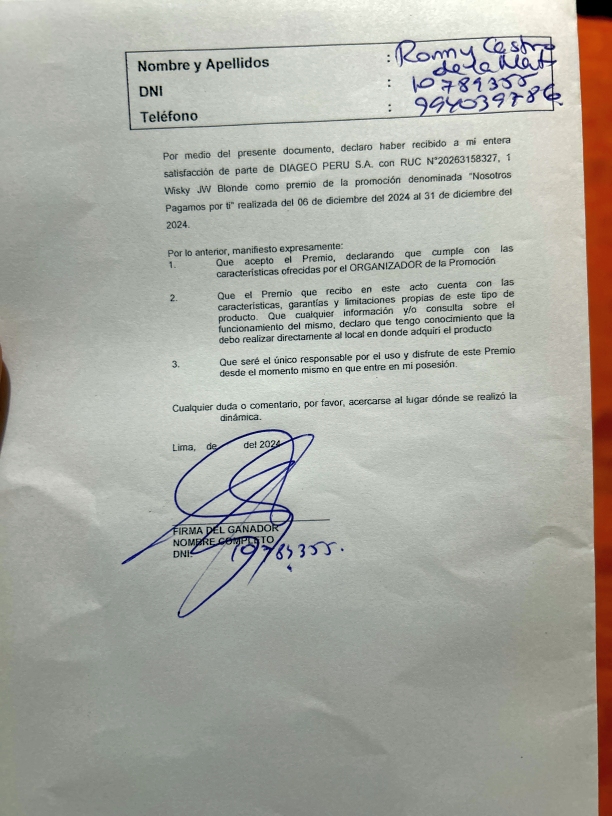 Nombre y Apellidos : Romy Castro
de la Mat
DNI : 10789355
Teléfono : 994039786
Por medio del presente documento, declaro haber recibido a mi entera
satisfacción de parte de DIAGEO PERU S.A. con RUC N°20263158327, 1
Wisky JW Blonde como premio de la promoción denominada "Nosotros
Pagamos por ti" realizada del 06 de diciembre del 2024 al 31 de diciembre del
2024.
Por lo anterior, manifiesto expresamente:
1. Que acepto el Premio, declarando que cumple con las
características ofrecidas por el ORGANIZADOR de la Promoción
2. Que el Premio que recibo en este acto cuenta con las
características, garantías y limitaciones propias de este tipo de
producto. Que cualquier información y/o consulta sobre el
funcionamiento del mismo, declaro que tengo conocimiento que la
debo realizar directamente al local en donde adquirí el producto
3. Que seré el único responsable por el uso y disfrute de este Premio
desde el momento mismo en que entre en mi posesión.
Cualquier duda o comentario, por favor, acercarse al lugar dónde se realizó la
dinámica.
Lima, de del 2024
FIRMA DEL GANADOR
NOMBRE COMPLETO
DNI: 10789355.